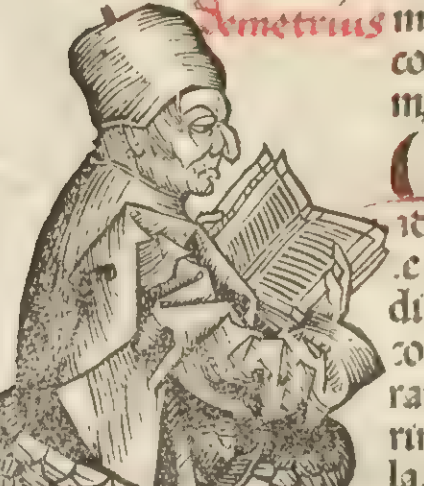 Demetrius m
co
m
C
it
.c
di
co
ra
rin
la.